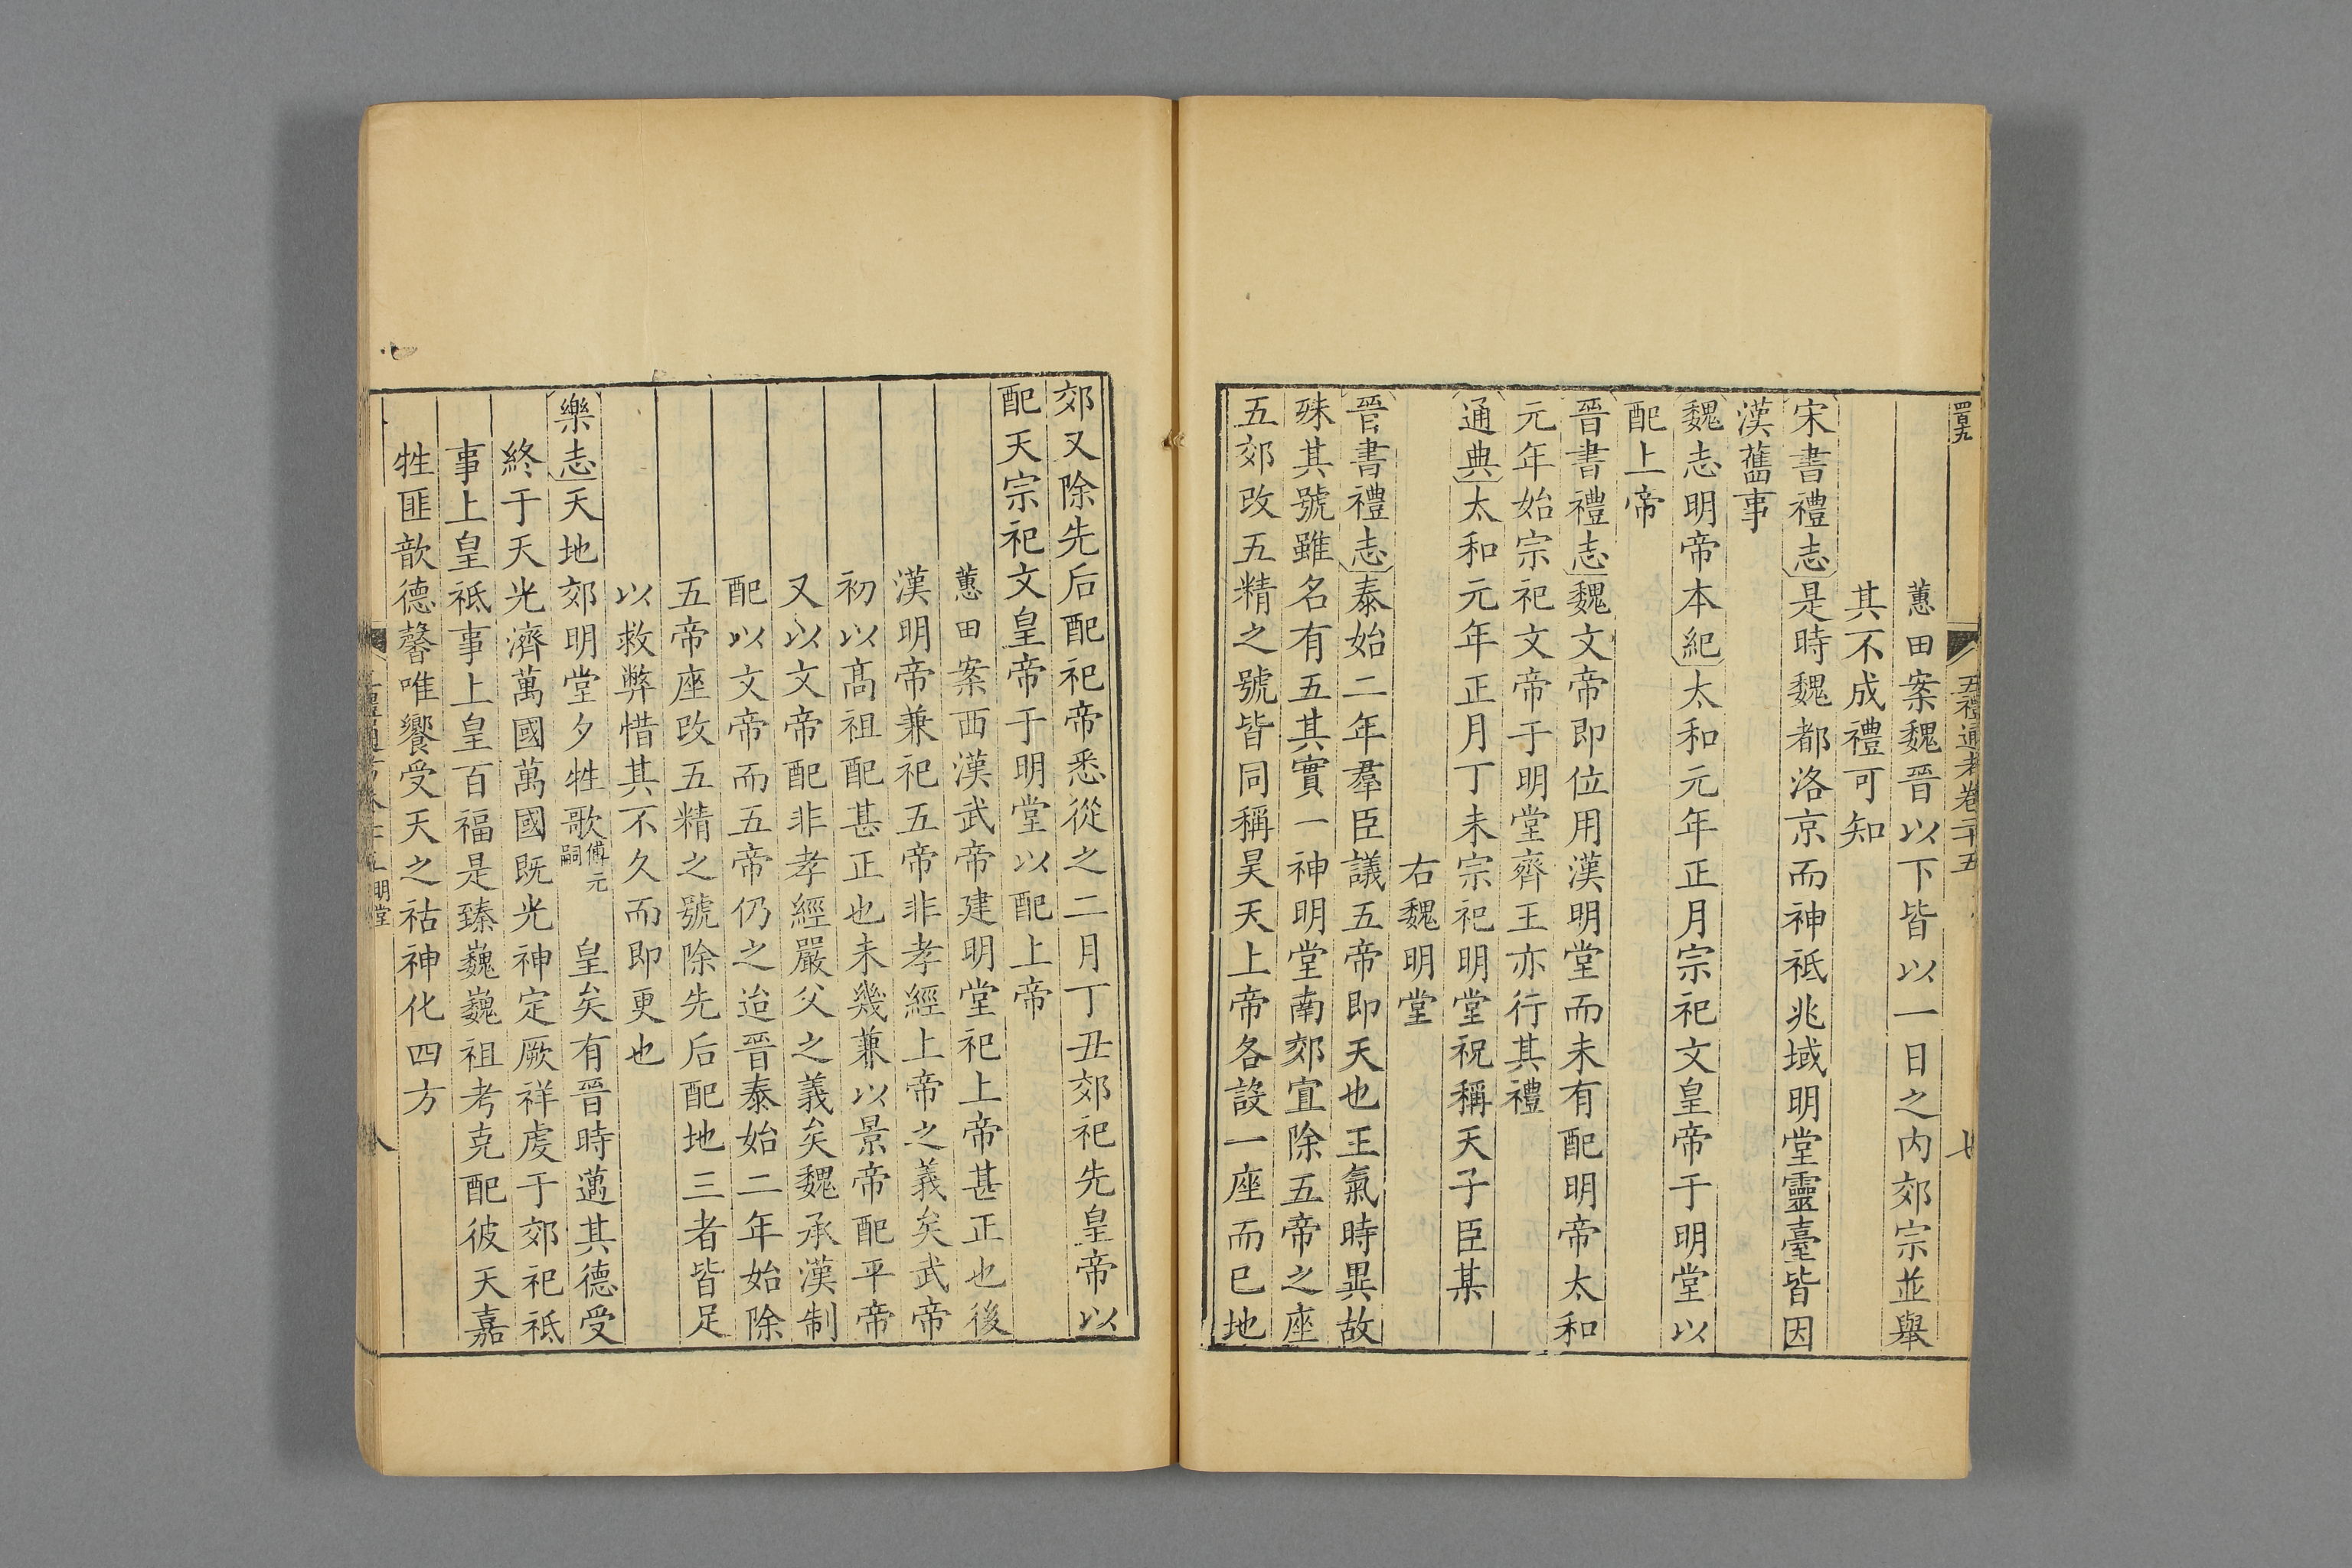 五禮通考卷二十五
蕙田案魏晉以下皆以一日之內郊宗並舉
其不成禮可知
宋書禮志是時魏都洛京而神祇兆域明堂靈臺皆因
漢舊事
魏志明帝本紀太和元年正月宗祀文皇帝于明堂以
配上帝
晉書禮志魏文帝即位用漢明堂而未有配明帝太和
元年始宗祀文帝于明堂齊王亦行其禮
通典太和元年正月丁未宗祀明堂祝稱天子臣某
右魏明堂
晉書禮志泰始二年羣臣議五帝即天也王氣時異故
殊其號雖名有五其實一神明堂南郊宜除五帝之座
五郊改五精之號皆同稱昊天上帝各設一座而已地
郊又除先后配祀帝悉從之二月丁丑郊祀先皇帝以
配天宗祀文皇帝于明堂以配上帝
蕙田案西漢武帝建明堂祀上帝甚正也後
漢明帝兼祀五帝非孝經上帝之義矣武帝
初以髙祖配甚正也未幾兼以景帝配平帝
又以文帝配非孝經嚴父之義矣魏承漢制
配以文帝而五帝仍之迨晉泰始二年始除
五帝座改五精之號除先后配地三者皆足
以救弊惜其不久而即更也
樂志天地郊明堂夕牲歌傅元嗣 皇矣有晉時邁其德受
終于天光濟萬國萬國既光神定厥祥虔于郊祀祇
事上皇祇事上皇百福是臻巍巍祖考克配彼天嘉
牲匪歆德馨唯饗受天之祜神化四方
明堂
八